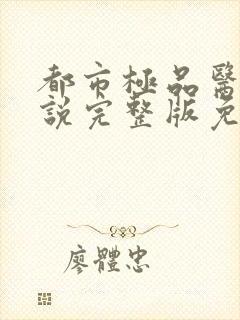 都市極品醫
說完整版免
廖體忠